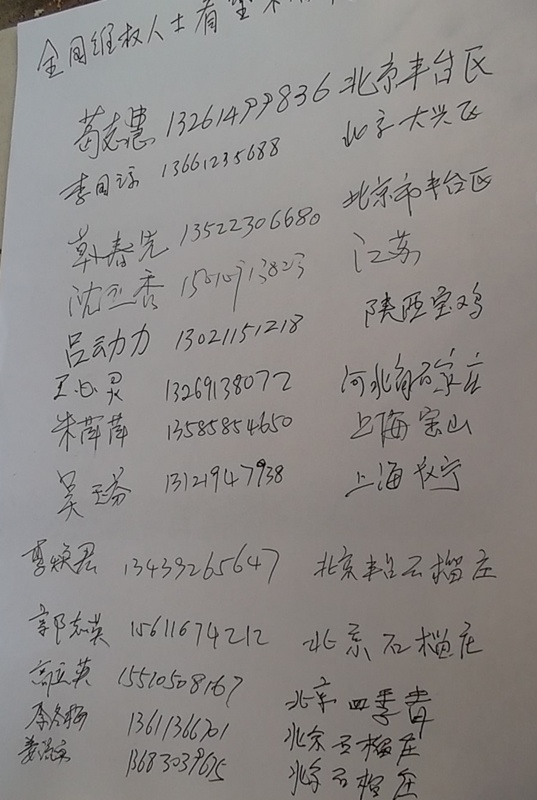 全国维权人士看望
苟志惠 13261499836 北京丰台区
李国 13661235688 北京大兴区
韩春先 13522306680 北京市丰台区
沈 香 江苏
吕动力 13021151218 陕西宝鸡
王 灵 13269138072 河北省石家庄
朱萍萍 13585854650 上海宝山
吴玉芬 13121947938 上海长宁
曹焕君 13439265647 北京丰台石榴庄
郭志英 15611674212 北京石榴庄
高亚英 15510508167 北京四季青
李冬梅 13611366701 北京石榴庄
姜 1368303 北京石榴庄